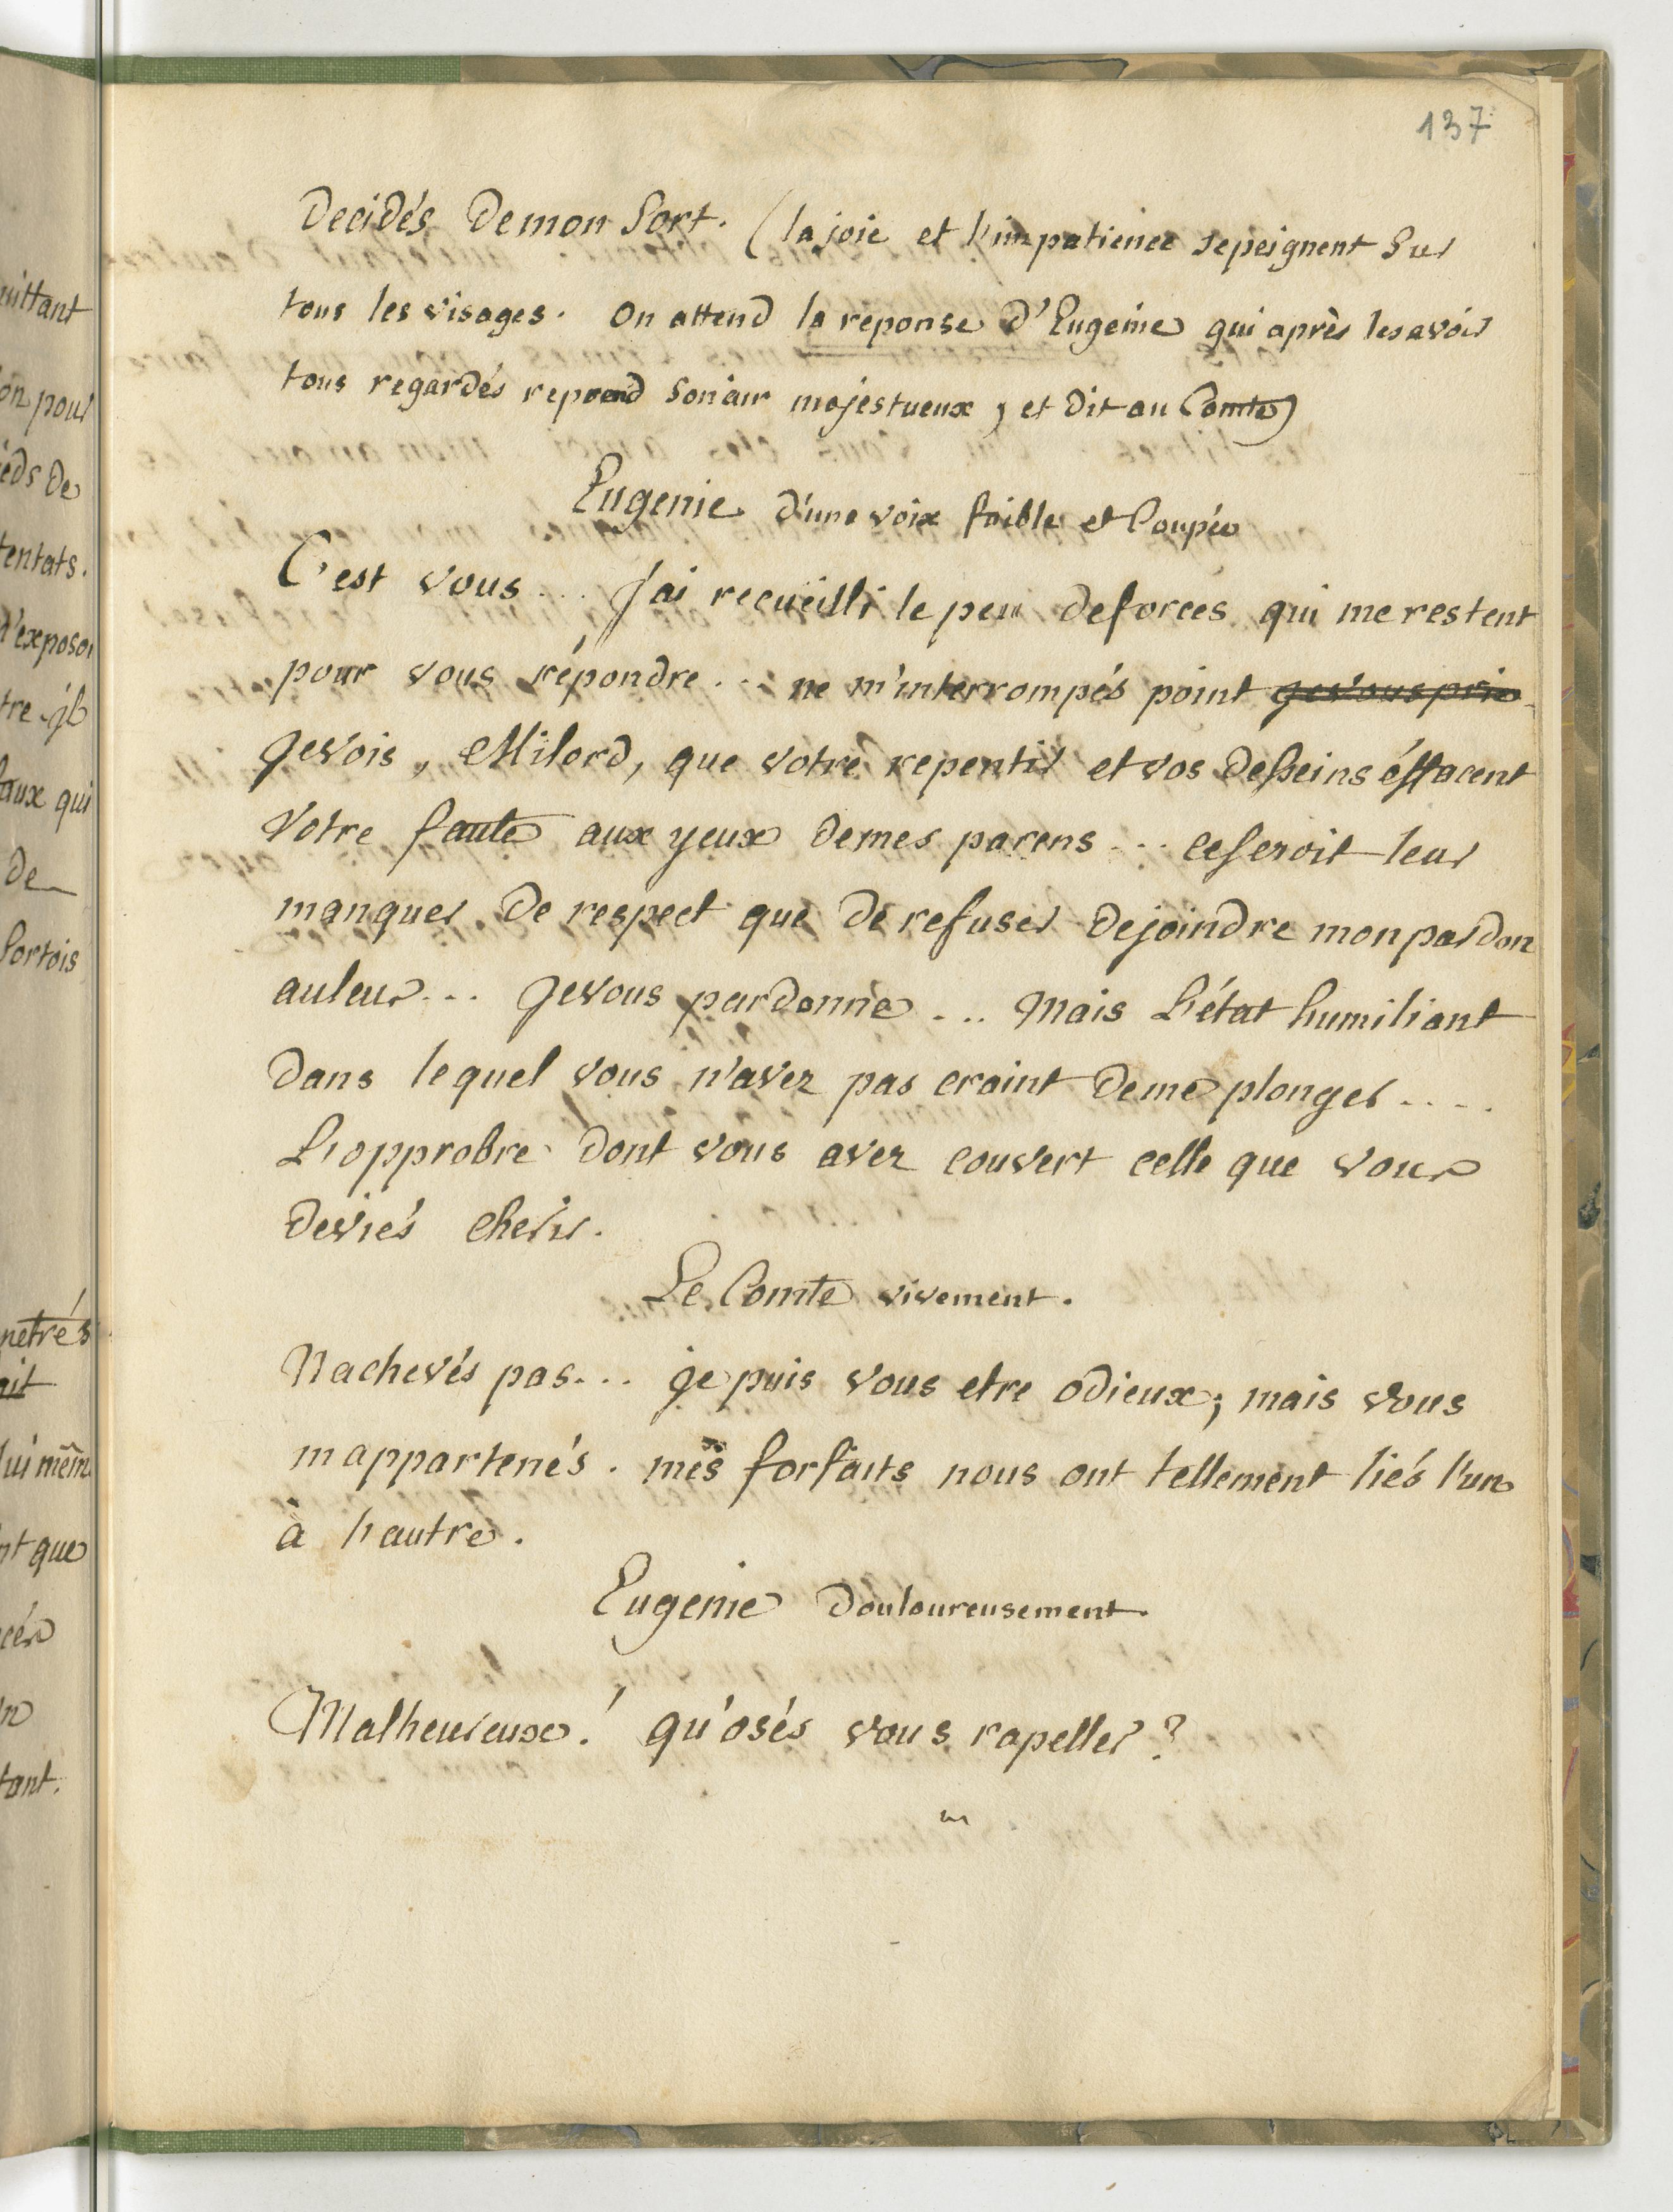 137
Decidés de mon sort. (la joie et l'impatience se peignent sur
tous les visages. On attend la reponse d'Eugenie qui après les avoir
tous regardés reprend son air majestueux, et dit au Comte)
Eugenie d'une voix foible et coupée
C'est vous... J'ai recueilli le peu de forces qui me restent
pour vous répondre... ne m'interrompés point je vous prie
je vois, Milord, que votre repentir et vos desseins éffacent
votre faute aux yeux de mes parens... ce seroit leur
manquer de respect que de refuser de joindre mon pardon
au leur... je vous pardonne... Mais l'état humiliant
dans lequel vous n'avez pas craint de me plonger....
L'opprobre dont vous avez couvert celle que vous
deviés cherir.
Le Comte vivement.
N'achevés pas... je puis vous etre odieux; mais vous
m'appartenés. mes forfaits nous ont tellement liés l'un
à l'autre.
Eugenie douloureusement.
Malheureux! qu'osés vous rapeller?
uittant
on pour
ieds de
tentats.
d'exposer
tre il
aux qui
de
sortois
netrés
ait
lui même
nt que
tant.